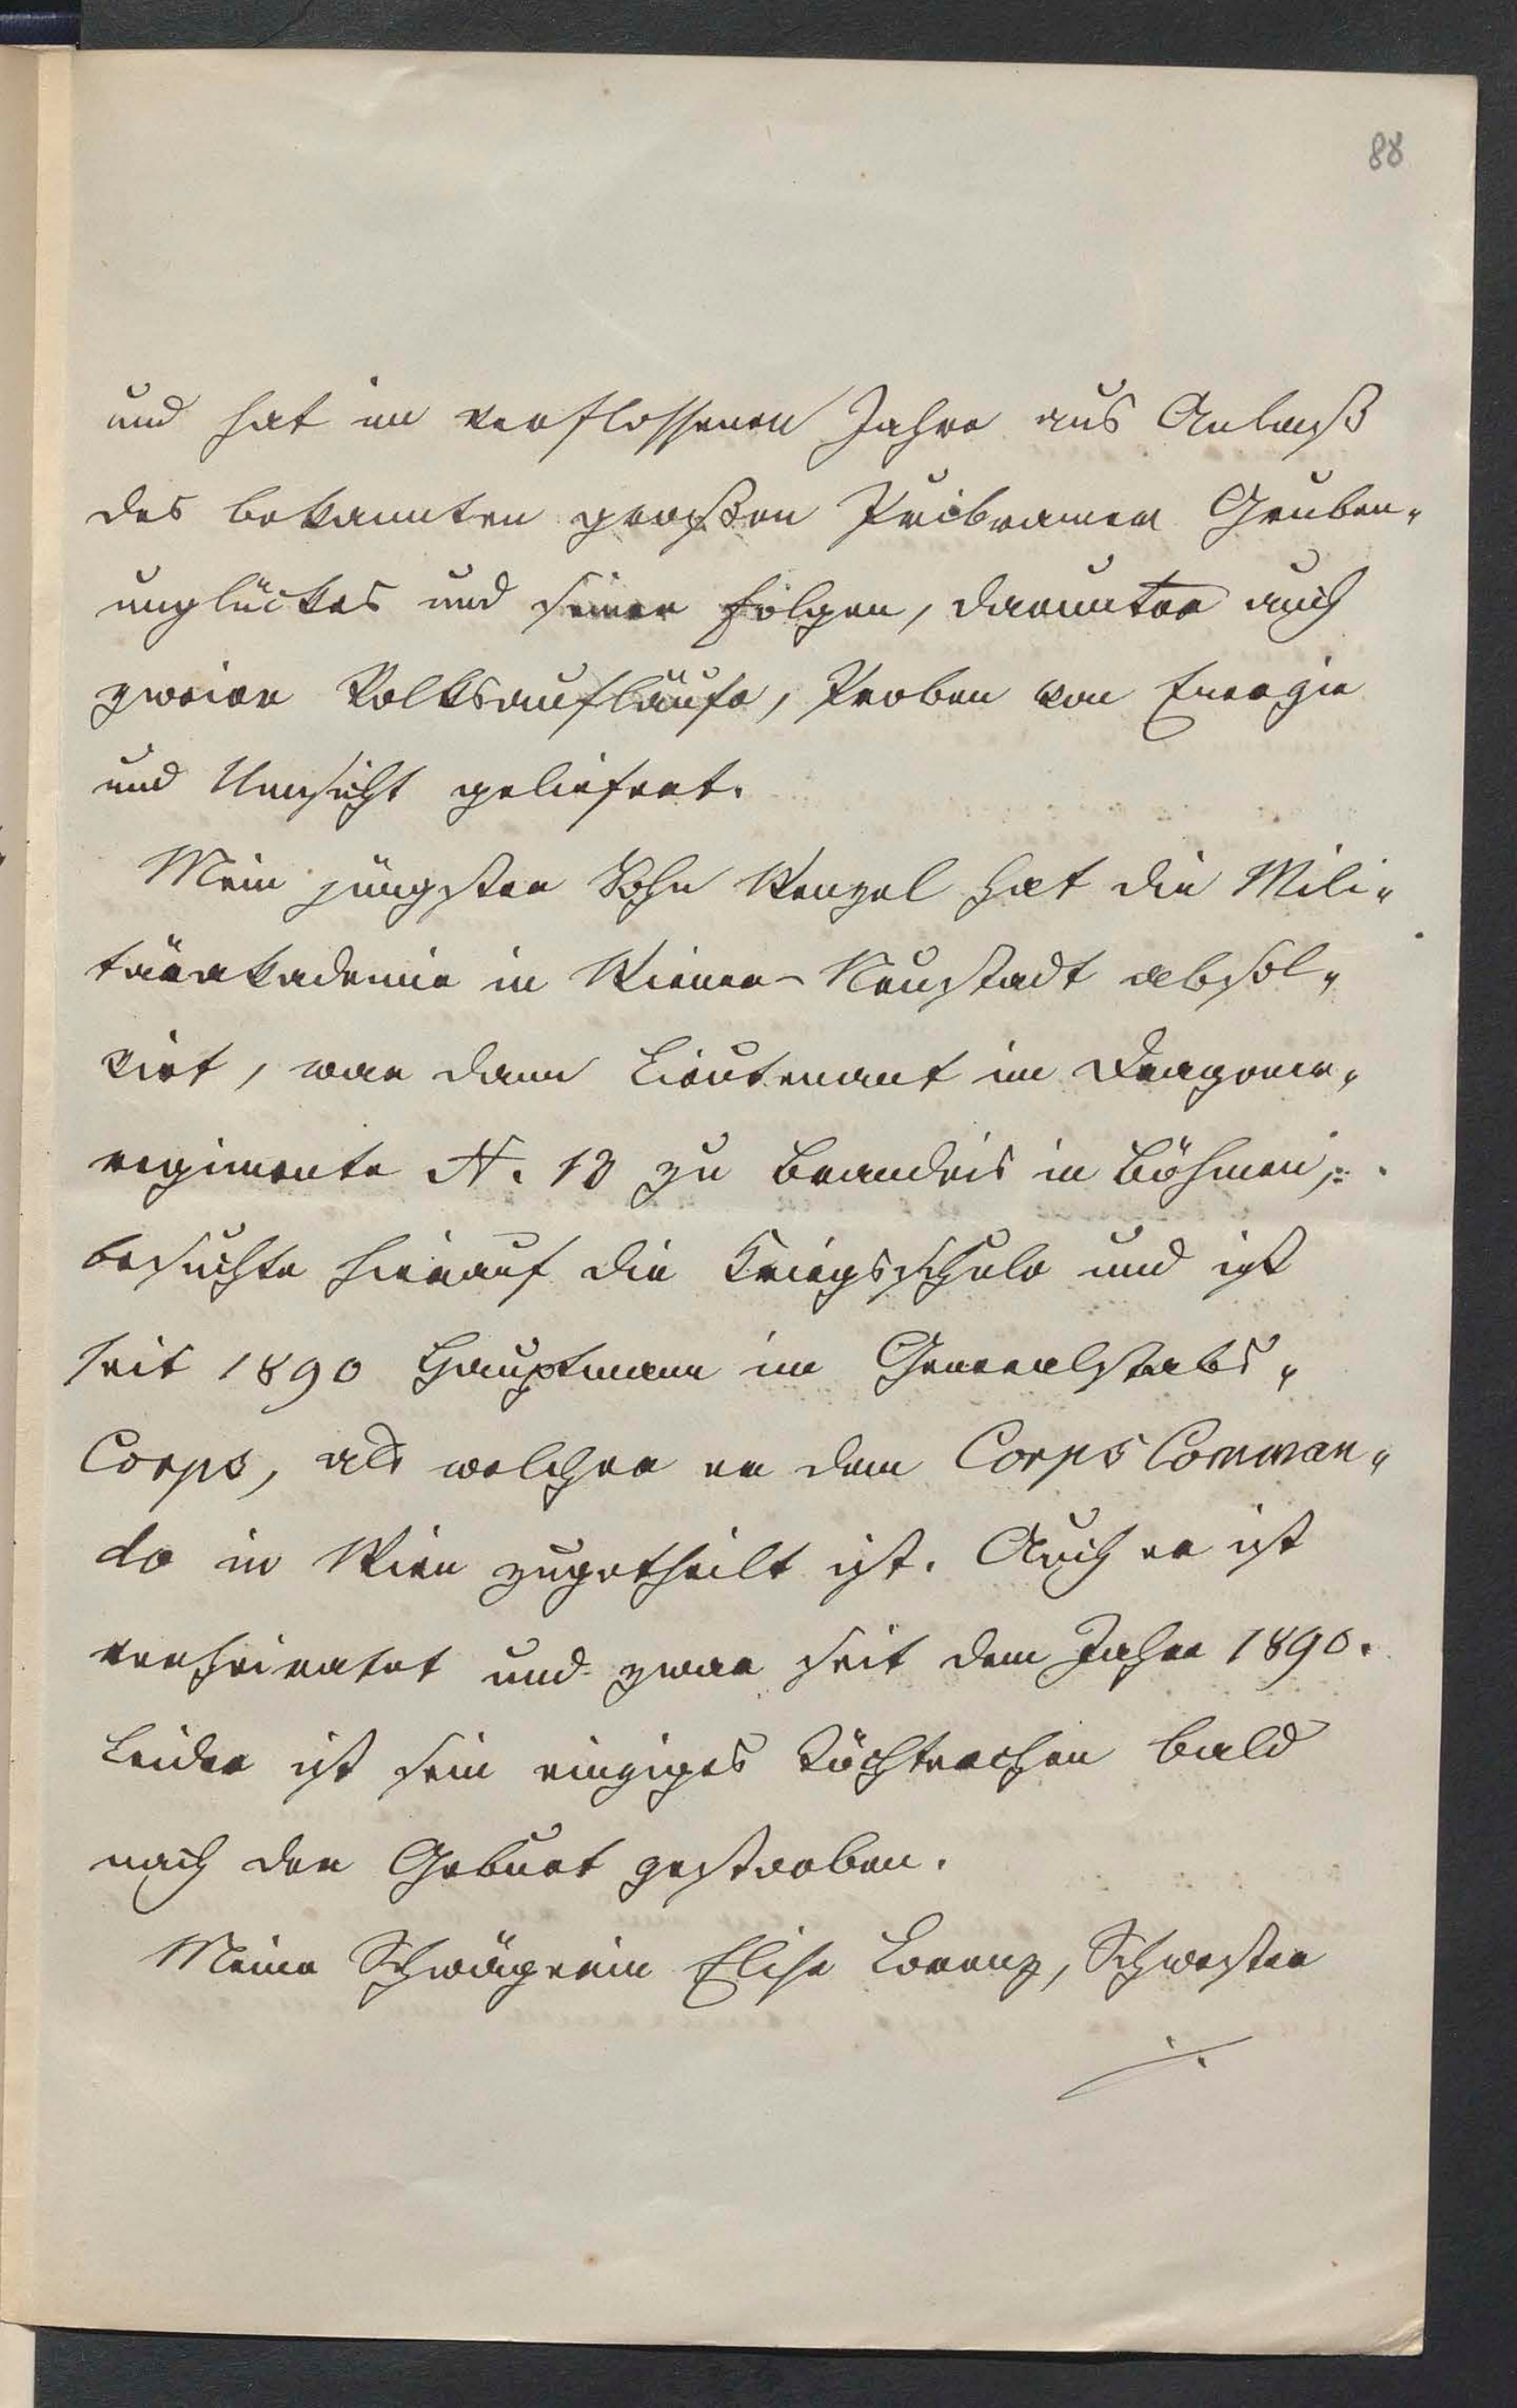 88
und hat im verflossenen Jahre aus Anlaß
des bekannten großen Pribramer Gruben„
unglückes und seiner Folgen, darunter auch
zweier Volksaufläufe, Proben von Energie
und Umsicht geliefert.
Mein jüngster Sohn Wenzel hat die Mili„
tärakademie in Wiener-Neustadt absol„
virt, war dann Lieutenant im Dragoner„
regimente N. 13 zu Brandeis in Böhmen,
besuchte hierauf die Kriegsschule und ist
seit 1890 Hauptmann im Generalstabs„
Corps, als welcher er dem Corps Comman„
do in Wien zugetheilt ist. Auch er ist
verheiratet und zwar seit dem Jahre 1890.
Leider ist sein einziges Töchterchen bald
nach der Geburt gestorben.
Meine Schwägerin Elise Lorenz, Schwester
./.